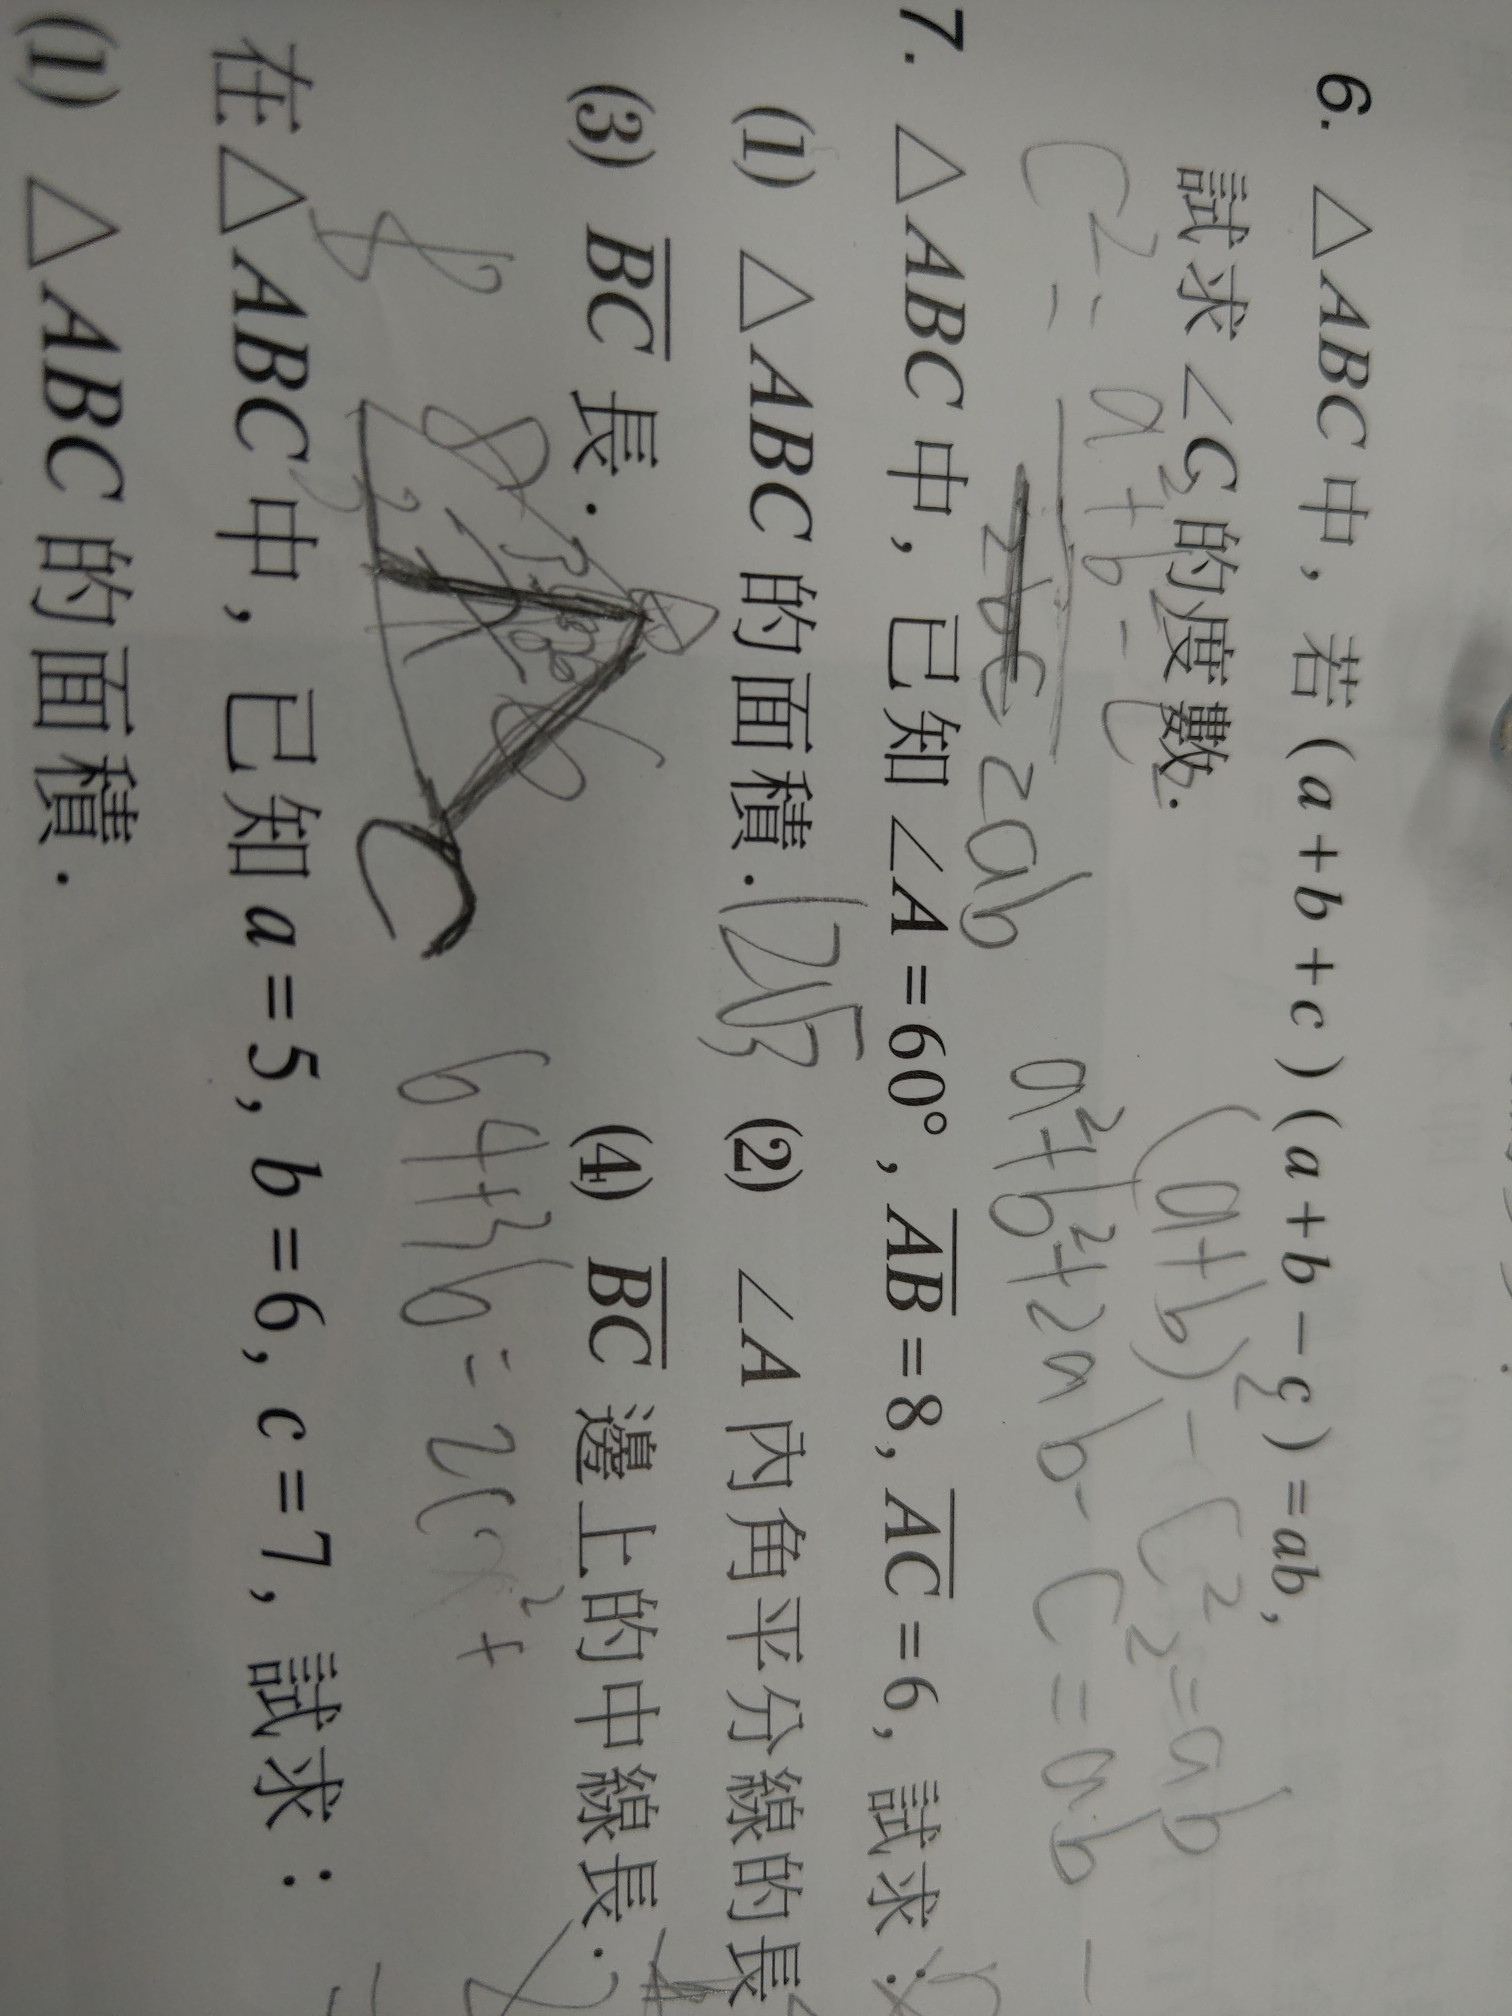 6. △ABC 中，若 (a+b+c)(a+b-c)=ab,
試求 ∠C 的度數.
(a+b)²-c²=ab
c²= a²+b²-c² 2ab
a²+b²+2ab-c²=ab
7. △ABC 中，已知 ∠A=60°, AB=8, AC=6, 試求：
(1) △ABC 的面積. 12√3 (2) ∠A 內角平分線的長
(3) BC 長. (4) BC 邊上的中線長.
8
64+36=2(x²+
在△ABC 中，已知 a=5, b=6, c=7, 試求：
(1) △ABC 的面積.